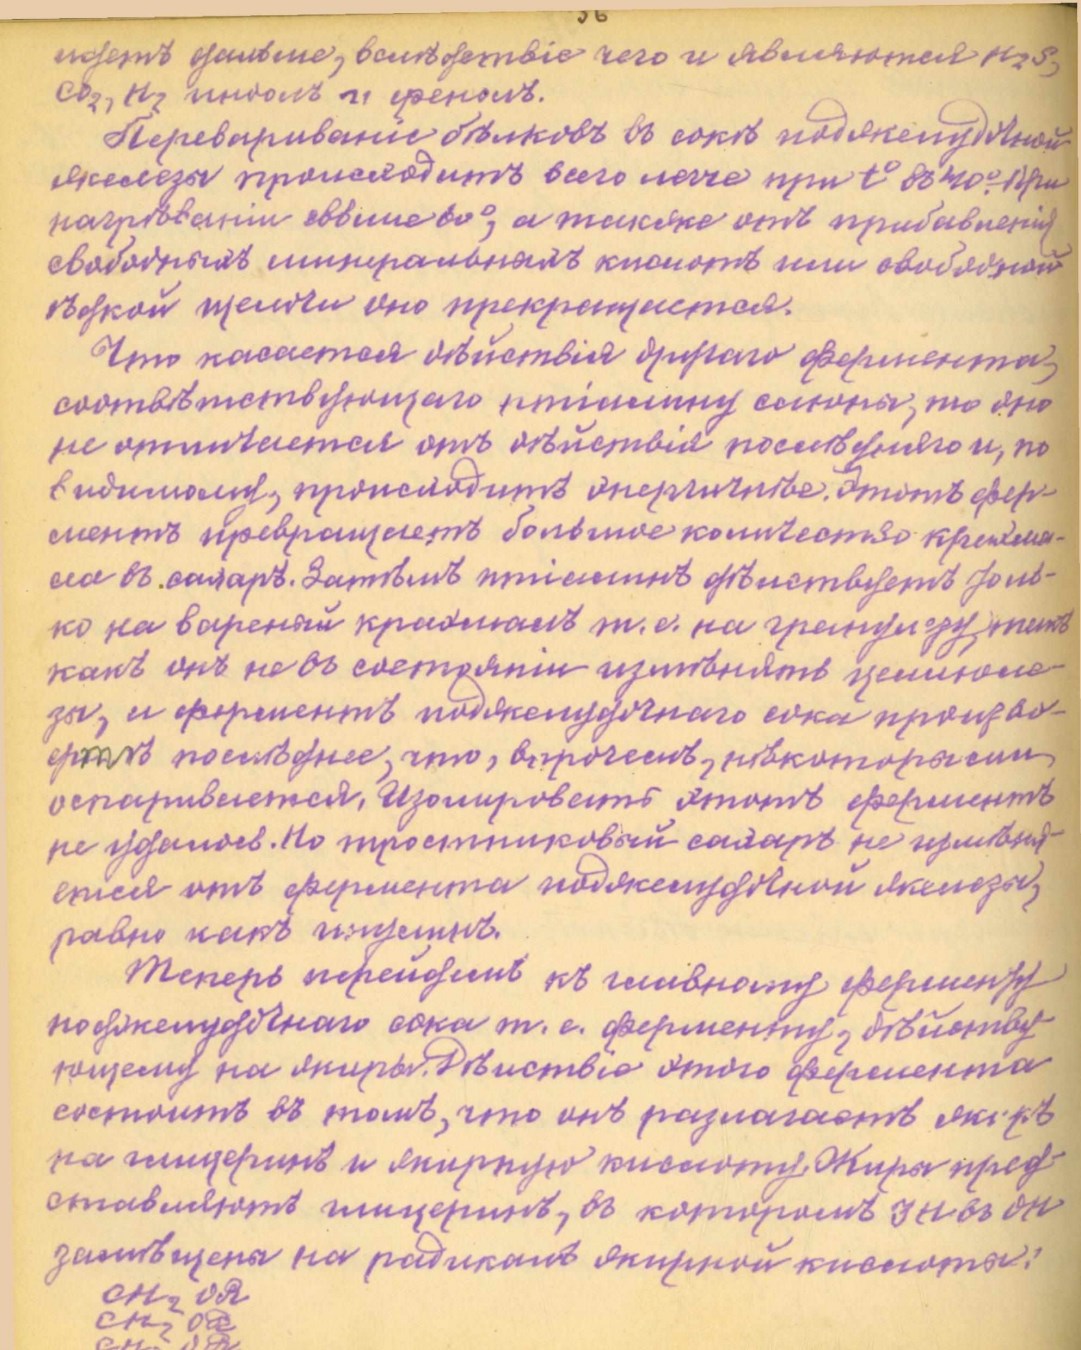 36
идетъ дальше, вслѣдствіе чего и являются H2S,
CO2, H2 индолъ и фенолъ.
Перевариваніе бѣлковъ въ сокѣ поджелудочной
железы происходитъ всего легче при t° въ 40°. При
нагрѣваніи свыше 60°, а также отъ прибавленія
свободныхъ минеральныхъ кислотъ или свободной
ѣдкой щелочи оно прекращается.
Что касается дѣйствія другаго фермента,
соотвѣтствующаго птіалину слюны, то оно
не отличается отъ дѣйствія послѣдняго и, по
видимому, происходитъ энергичнѣе. Этотъ фер-
ментъ превращаетъ большое количество крахма-
ла въ сахаръ. Затѣмъ птіалинъ дѣиствуетъ толь-
ко на вареный крахмалъ т. е. на гранулезу, такъ
какъ онъ не въ состояніи измѣнять целлюло-
зы, и ферментъ поджелудочнаго сока произво-
дитъ послѣднее, что, впрочемъ, нѣкоторыми
оспаривается. Изолировать этотъ ферментъ
не удалось. Но тростниковый сахаръ не измѣня-
ется отъ фермента поджелудочной железы,
равно какъ инулинъ.
Теперь перейдемъ къ главному ферменту
поджелудочнаго сока т. е. ферменту, дѣйству-
ющему на жиры. Дѣиствіе этого фермента
состоитъ въ томъ, что онъ разлагаетъ жиръ
на глицеринъ и жирную кислоту. Жиры пред-
ставляютъ глицеринъ, въ которомъ 3 H въ OH
замѣщены на радикалъ жирной кислоты:
CH2 OR
CH2 OR